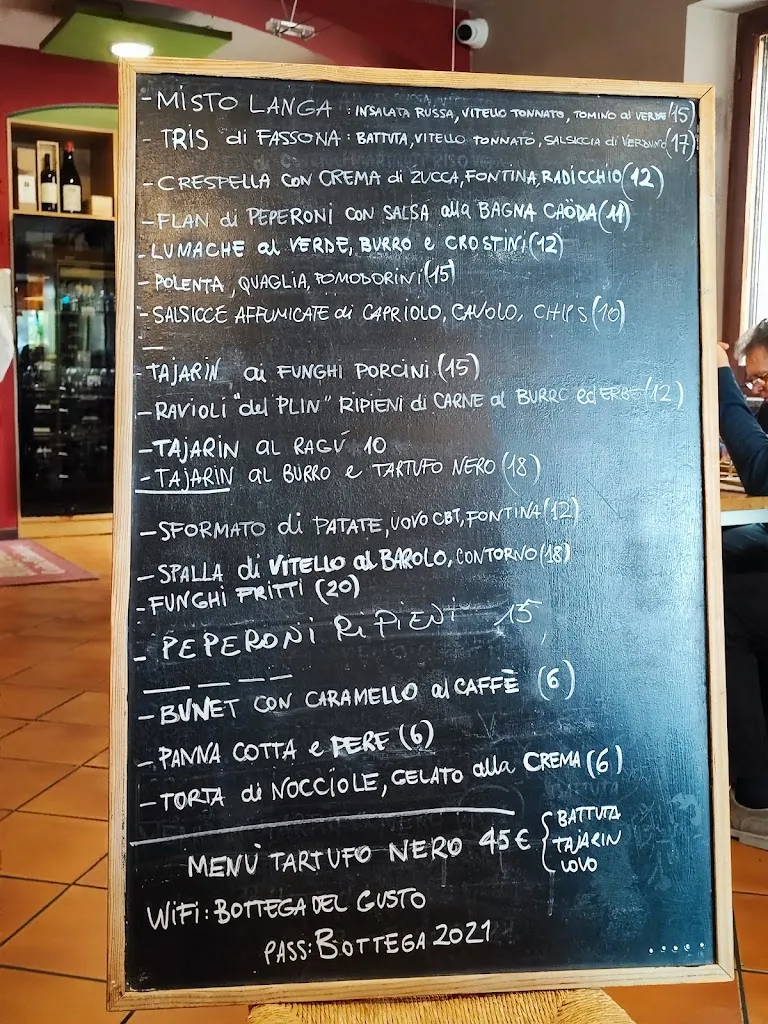 - MISTO LANGA : INSALATA RUSSA, VITELLO TONNATO, TOMINO al VERDE (15)
- TRIS di FASSONA : BATTUTA, VITELLO TONNATO, SALSICCIA di VERDUNO (17)
- CRESPELLA CON CREMA di ZUCCA, FONTINA, RADICCHIO (12)
- FLAN di PEPERONI CON SALSA alla BAGNA CAÖDA (11)
- LUMACHE al VERDE, BURRO e CROSTINI (12)
- POLENTA, QUAGLIA, POMODORINI (15)
- SALSICCE AFFUMICATE di CAPRIOLO, CAVOLO, CHIPS (10)
- TAJARIN ai FUNGHI PORCINI (15)
- RAVIOLI "del PLIN" RIPIENI di CARNE al BURRO ed ERBE (12)
- TAJARIN AL RAGÚ 10
- TAJARIN al BURRO e TARTUFO NERO (18)
- SFORMATO di PATATE, UOVO CBT, FONTINA (12)
- SPALLA di VITELLO al BAROLO, CONTORNO (18)
- FUNGHI FRITTI (20)
- PEPERONI RiPIENI 15
- BUNET CON CARAMELLO al CAFFÈ (6)
- PANNA COTTA e PERE (6)
- TORTA di NOCCIOLE, GELATO alla CREMA (6)
MENÙ TARTUFO NERO 45€ { BATTUTA
TAJARIN
UOVO
WiFi: BOTTEGA DEL GUSTO
PASS: BOTTEGA 2021